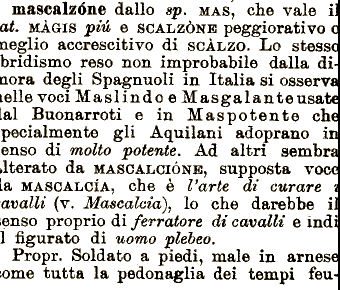 mascalzóne dallo sp. MAS, che vale il
at. MÀGIS piú e SCALZÒNE peggiorativo o
meglio accrescitivo di SCÀLZO. Lo stesso
bridismo reso non improbabile dalla di-
mora degli Spagnuoli in Italia si osserva
nelle voci Maslindo e Masgalante usate
dal Buonarroti e in Maspotente che
specialmente gli Aquilani adoprano in
senso di molto potente. Ad altri sembra
alterato da MASCALCIÓNE, supposta voce
da MASCALCÍA, che è l'arte di curare i
cavalli (v. Mascalcia), lo che darebbe il
senso proprio di ferratore di cavalli e indi
il figurato di uomo plebeo.
Propr. Soldato a piedi, male in arnese
come tutta la pedonaglia dei tempi feu-